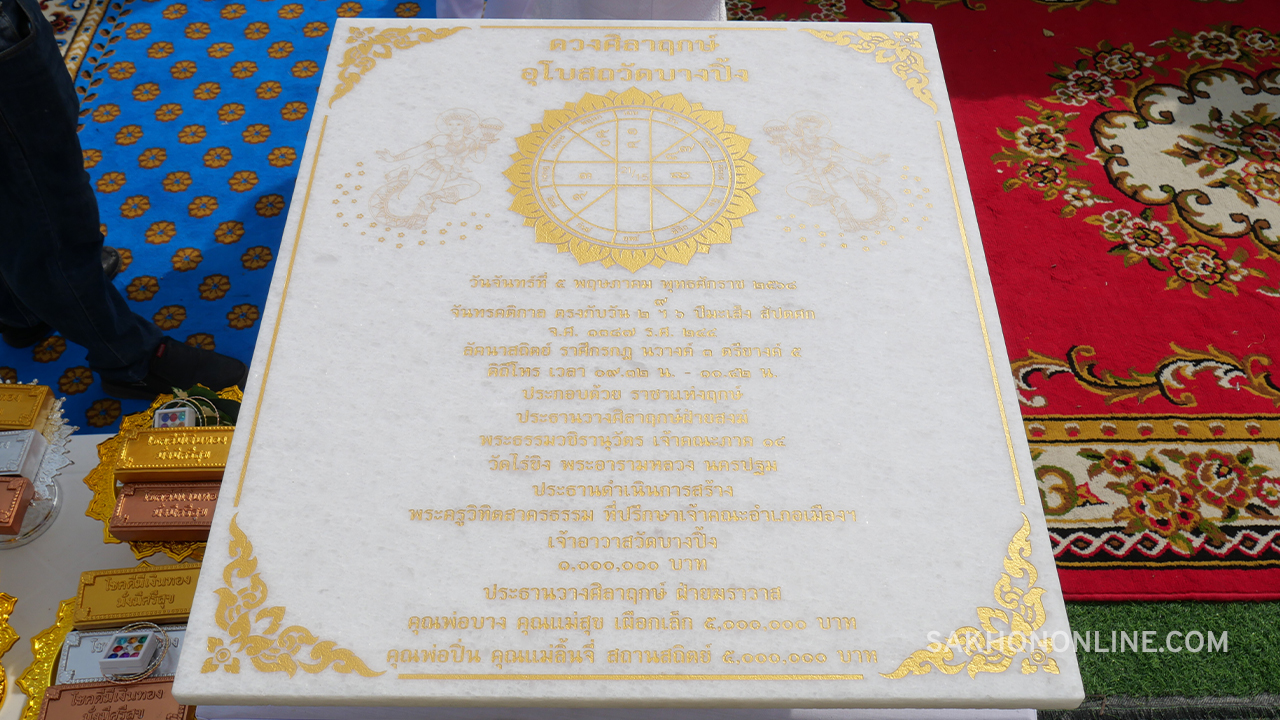 ดวงศิลาฤกษ์
อุโบสถวัดบางปิ้ง
วันจันทร์ที่ ๕ พฤษภาคม พุทธศักราช ๒๕๖๘
จันทรคติกาล ตรงกับวัน ๒ ๖ ปีมะเส็ง สัปตศก
จ.ศ. ๑๓๘๗ ร.ศ. ๒๔๔
ลัคนาสถิตย์ ราศีกรกฎ นวางค์ ๑ ตรียางค์
ดิถีโทร เวลา น. - น.
ประกอบด้วย ราชาแห่งฤกษ์
ประธานวางศิลาฤกษ์ฝ่ายสงฆ์
พระธรรมวชิรานุวัตร เจ้าคณะภาค ๑๔
วัดไร่ขิง พระอารามหลวง นครปฐม
ประธานดำเนินการสร้าง
พระครูวิทิตศาครธรรม ที่ปรึกษาเจ้าคณะอำเภอเมืองฯ
เจ้าอาวาสวัดบางปิ้ง
๑,๐๐๐,๐๐๐ บาท
ประธานวางศิลาฤกษ์ ฝ่ายฆราวาส
คุณพ่อบาง คุณแม่สุข เผือกเล็ก ๕,๐๐๐,๐๐๐ บาท
คุณพ่อปิ่น คุณแม่ลิ้นจี่ สถานสถิตย์ ๕,๐๐๐,๐๐๐ บาท
โชคดีมีเงินทอง
มั่งมีศรีสุข
โชคดีมีเงินทอง
มั่งมีศรีสุข
SAKHONONLINE.COM